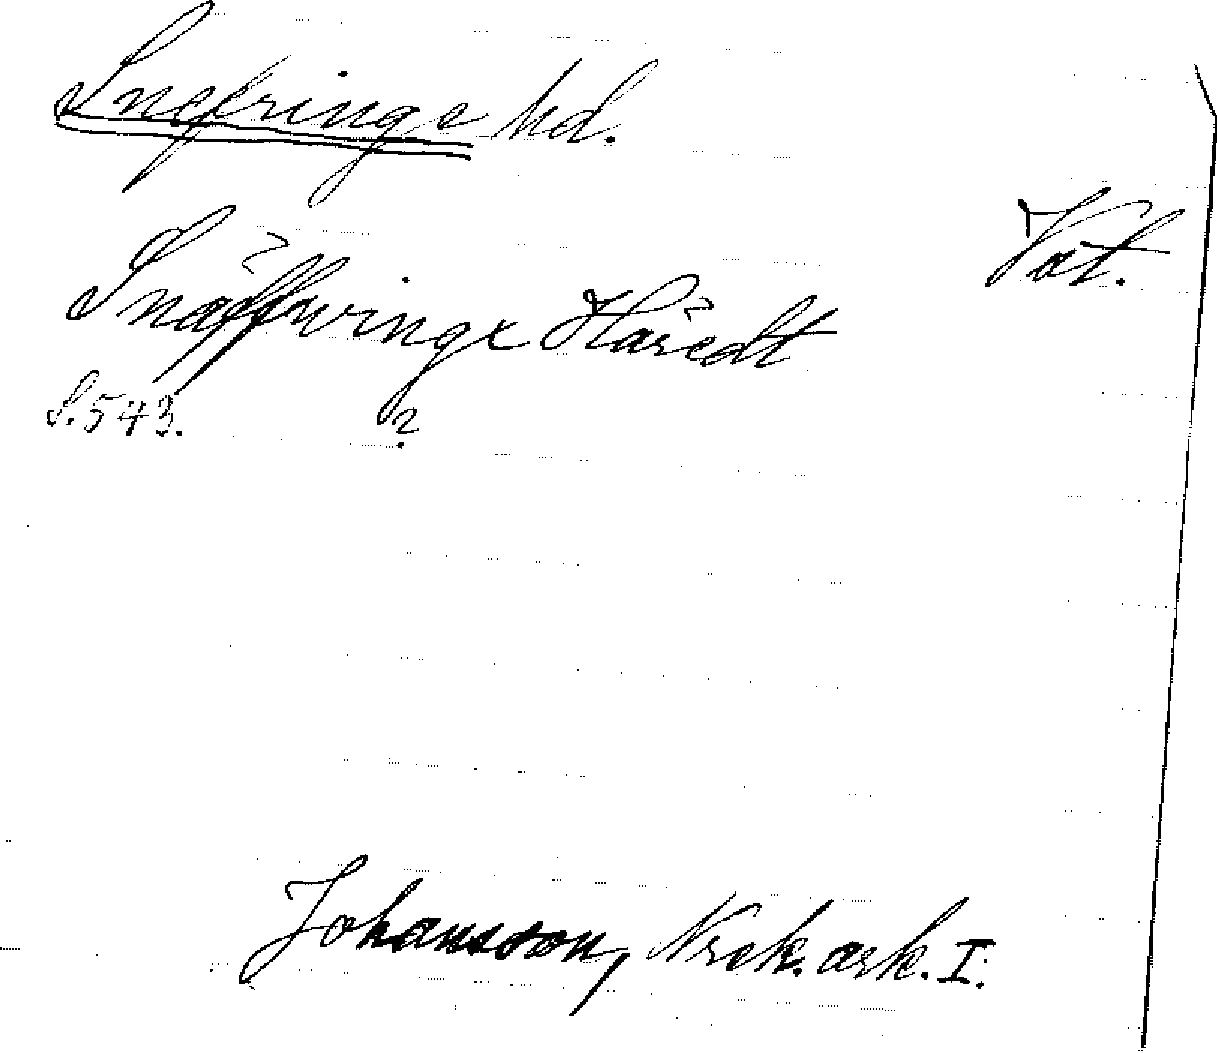 Snefringe hd.
Vat.
Snäffwinge Häredt
S. 543.
?
Johansson, Norsk. ark. I.